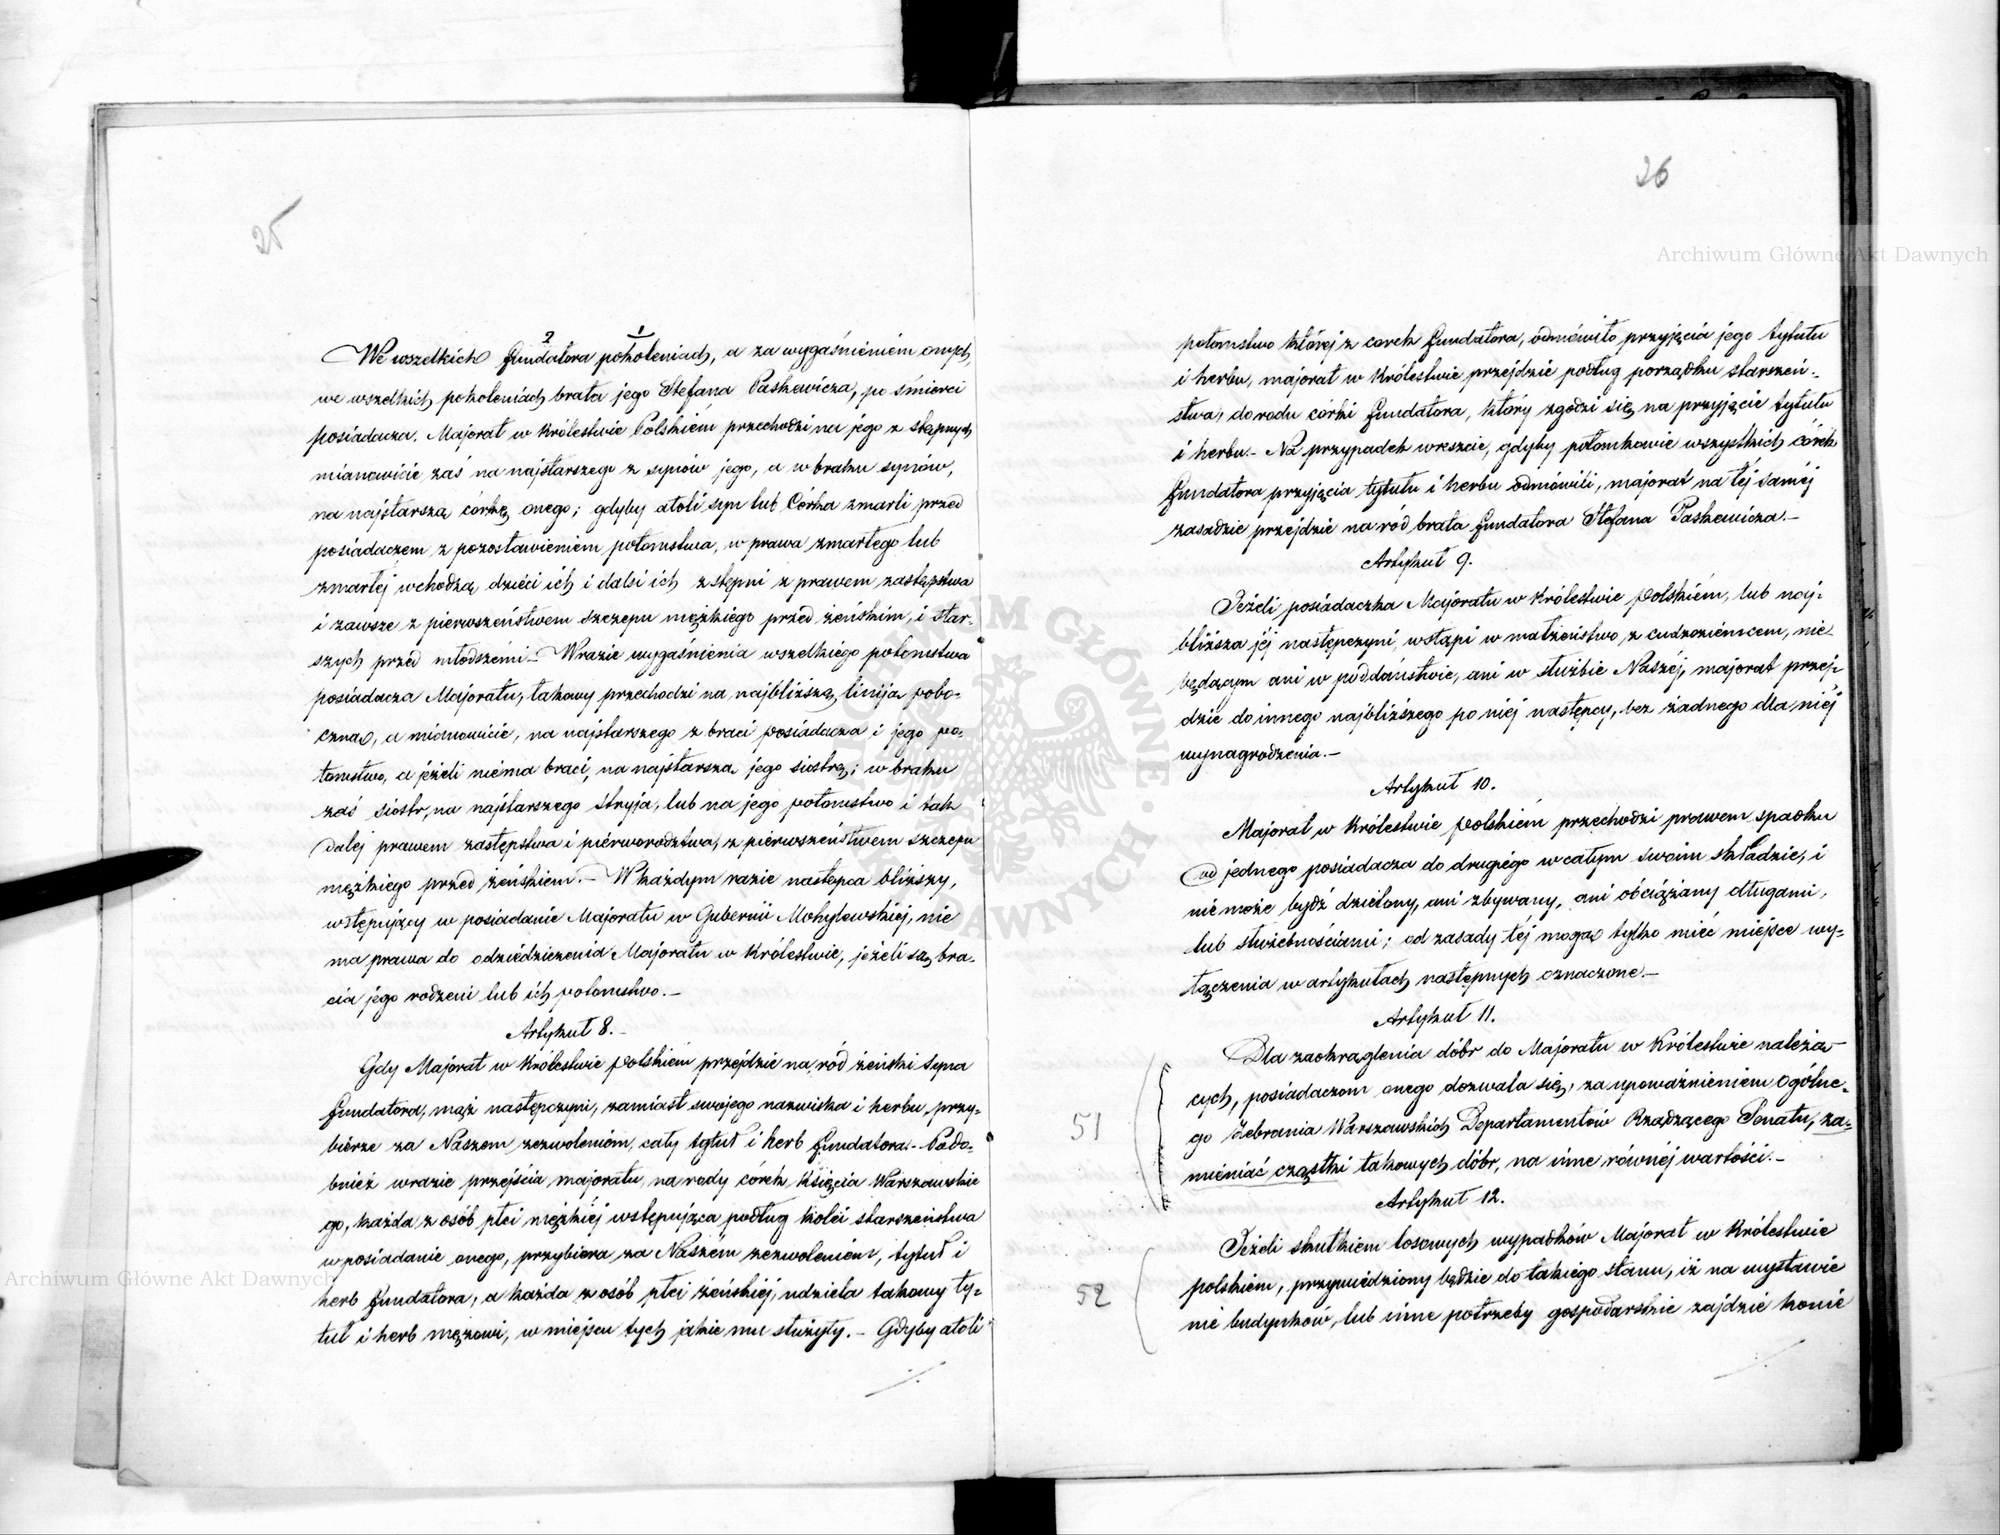 25
2 1
We wszelkich fundatora pokoleniach, a za wygaśnieniem onych,
we wszelkich pokoleniach brata jego Stefana Paskewicza, po śmierci
posiadacza, Majorat w Królestwie Polskiém przechodzi na jego zstępnych
mianowicie zaś na najstarszego z synów jego, a w braku synów,
na najstarszą córkę onego; gdyby atoli syn lub Córka zmarli przed
posiadaczem z pozostawieniem potomstwa, w prawa zmarłego lub
zmarłej wchodzą, dzieci ich i dalsi ich zstępni z prawem zastępstwa
i zawsze z pierwszeństwem szczepu męzkiego przed żeńskim, i star-
szych przed młodszemi. – W razie wygaśnienia wszelkiego potomstwa
posiadacza Majoratu, takowy przechodzi na najbliższą linija pobo-
czną, a mianowicie, na najstarszego z braci posiadacza i jego po-
tomstwo, a jeżeli niéma braci, na najstarszą jego siostrę; w braku
zaś siostr, na najstarszego stryja, lub na jego potomstwo i tak
dalej prawem zastępstwa i piérworodztwa, z pierwszeństwem szczepu
męzkiego przed żeńskiem. – W każdym razie następca bliższy,
wstępujący w posiadanie Majoratu w Gubernii Mohylewskiéj, nie
ma prawa do odziedziczenia Majoratu w Królestwie, jeżeli są bra-
cia jego rodzeni lub ich potomstwo. –
Artykuł 8. –
Gdy Majorat w Królestwie polskiém przejdzie na ród żeński syna
fundatora, mąż następczyni, zamiast swojego nazwiska i herbu, przy-
biérze za Naszem zezwoleniem, cały tytuł i herb fundatora. – Podo-
bnież w razie przejścia majoratu, na rody córek Księcia Warszawskie
go, każda z osób płci męzkiéj wstępująca podług kolei starszeństwa
w posiadanie onego, przybiera za Naszém zezwoleniém, tytuł i
herb fundatora, a każda z osób płci żeńskiéj, udziela takowy ty-
tuł i herb mężowi, w miejscu tych jakie mu służyły. – Gdyby atoli
26
potomstwo któréj z corek fundatora, odmówiło przyjęcia jego tytułu
i herbu, majorat w Królestwie przejdzie podług porządku starszeń-
stwa, do rodu córki fundatora, który zgodzi się na przyjęcie tytułu
i herbu. – Na przypadek wreszcie, gdyby potomkowie wszystkich córek
fundatora przyjęcia tytułu i herbu odmówili, majorat na téj saméj
zasadzie przejdzie na ród brata fundatora Stefana Paskewicza. –
Artykuł 9.
Jeżeli posiadaczka Majoratu w Królestwie polskiém, lub naj-
bliższa jéj następczyni, wstąpi w małżeństwo z cudzoziemcem, nie
będącym ani w poddaństwie, ani w służbie Naszéj, majorat przej-
dzie do innego najbliższego po niéj następcy, bez żadnego dla niéj
wynagrodzenia. –
Artykuł 10.
Majorat w Królestwie polskiém przechodzi prawem spadku
od jednego posiadacza do drugiego w całym swoim składzie, i
nie może bydź dzielony, ani zbywany, ani obciążany długami,
lub służebnościami; od zasady téj mogą tylko mieć miejsce wy-
łączenia w artykułach następnych oznaczone. –
Artykuł 11.
Dla zaokrąglenia dóbr do Majoratu w Królestwie należą-
cych, posiadaczom onego dozwala się, za upoważnieniem Ogólne-
51 go Zebrania Warszawskich Departamentów Rządzącego Senatu, za-
mieniać cząstki takowych dóbr, na inne równéj wartości. –
Artykuł 12.
Jeżeli skutkiem losowych wypadków Majorat w Królestwie
52 polskiém, przywiedziony będzie do takiego stanu, iż na wystawie
nie budynków, lub inne potrzeby gospodarskie zajdzie konie
Archiwum Główne Akt Dawnych
Archiwum Główne Akt Dawnych
ARCHIWUM GŁÓWNE AKT DAWNYCH